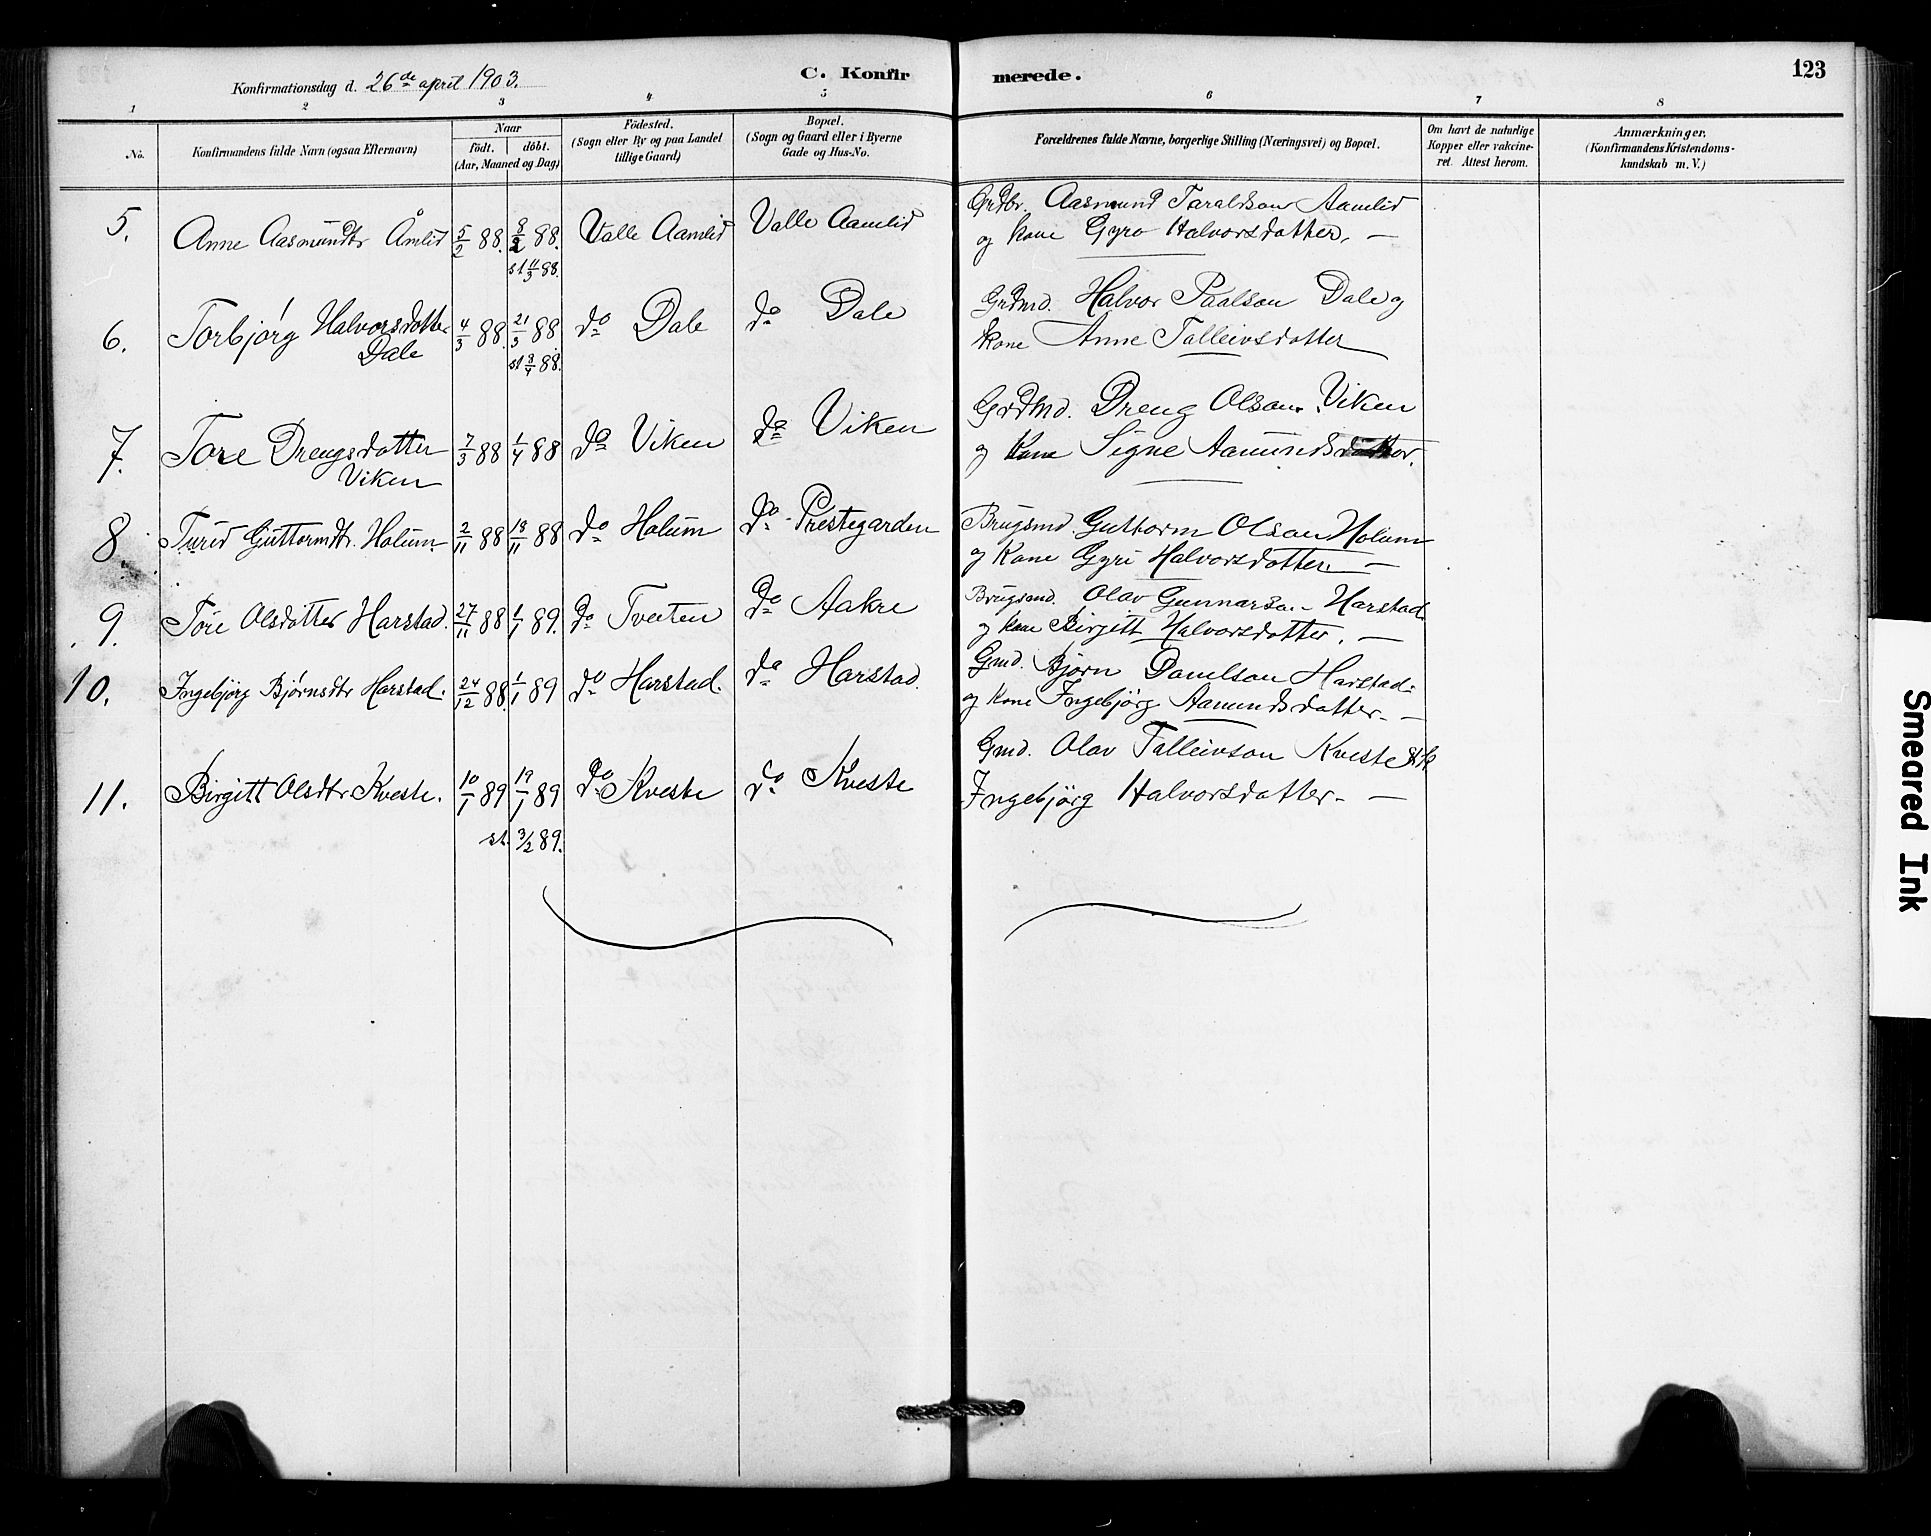 C. Konfirmerede.
123
Konfirmationsdag d. 26de april 1903.
1 2 3 4 5 6 7 8
No.
Konfirmandens fulde Navn (ogsaa Efternavn)
Naar
födt. döbt.
(Aar, Maaned og Dag)
Födested.
(Sogn eller By og paa Landet
tillige Gaard)
Bopæl.
(Sogn og Gaard eller i Byerne
Gade og Hus-No.
Forældrenes fulde Navne, borgerlige Stilling (Næringsvei) og Bopæl.
Om havt de naturlige
Kopper eller vakcine-
ret. Attest herom.
Anmærkninger.
(Konfirmandens Kristendoms-
kundskab m. V.)
5. Anne Aasmundtr Åmlid 5/2 88. 8/2 88. Valle Aamlid Valle Aamlid
st 11/3 88.
Grdbr. Aasmund Taraldson Aamlid
og kone Gyro Halvorsdatter. —
6. Torbjørg Halvorsdotter 4/3 88. 21/3 88. do Dale do Dale
Dale
st 3/4 88.
Grdmd. Halvor Paalson Dale og
kone Anne Talleivsdatter
7. Tore Drengsdotter 7/3 88 1/4 88 do Viken do Viken
Viken
Grdmd. Dreng Olson. Viken
og kone Signe Aamundsdatter.
8 Turid Guttormdtr. Holum. 2/11 88 18/11 88 do Holum do Prestegarden
Brugsmd. Guttorm Olson Holum
og Kone Gyri Halvorsdotter. —
9. Tore Olsdotter Harstad. 27/11 88 1/1 89. do Tveiten do Aakre
Brugsmd. Olav Gunnarson Harstad
og kone Birgitt Halvorsdotter. —
10. Ingebjørg Bjørnsdtr Harstad. 24/12 88. 1/1 89 do Harstad. do Harstad.
Gmd. Bjørn Danelson Harstad
og kone Ingebjörg Aamundsdatter. —
11. Birgitt Olsdtr Kveste. 10/1 89 19/1 89 do Kveste do Kveste
st. 3/2 89.
Gmd. Olav Talleivson Kveste
Ingebjörg Halvorsdatter. —
Smeared Ink